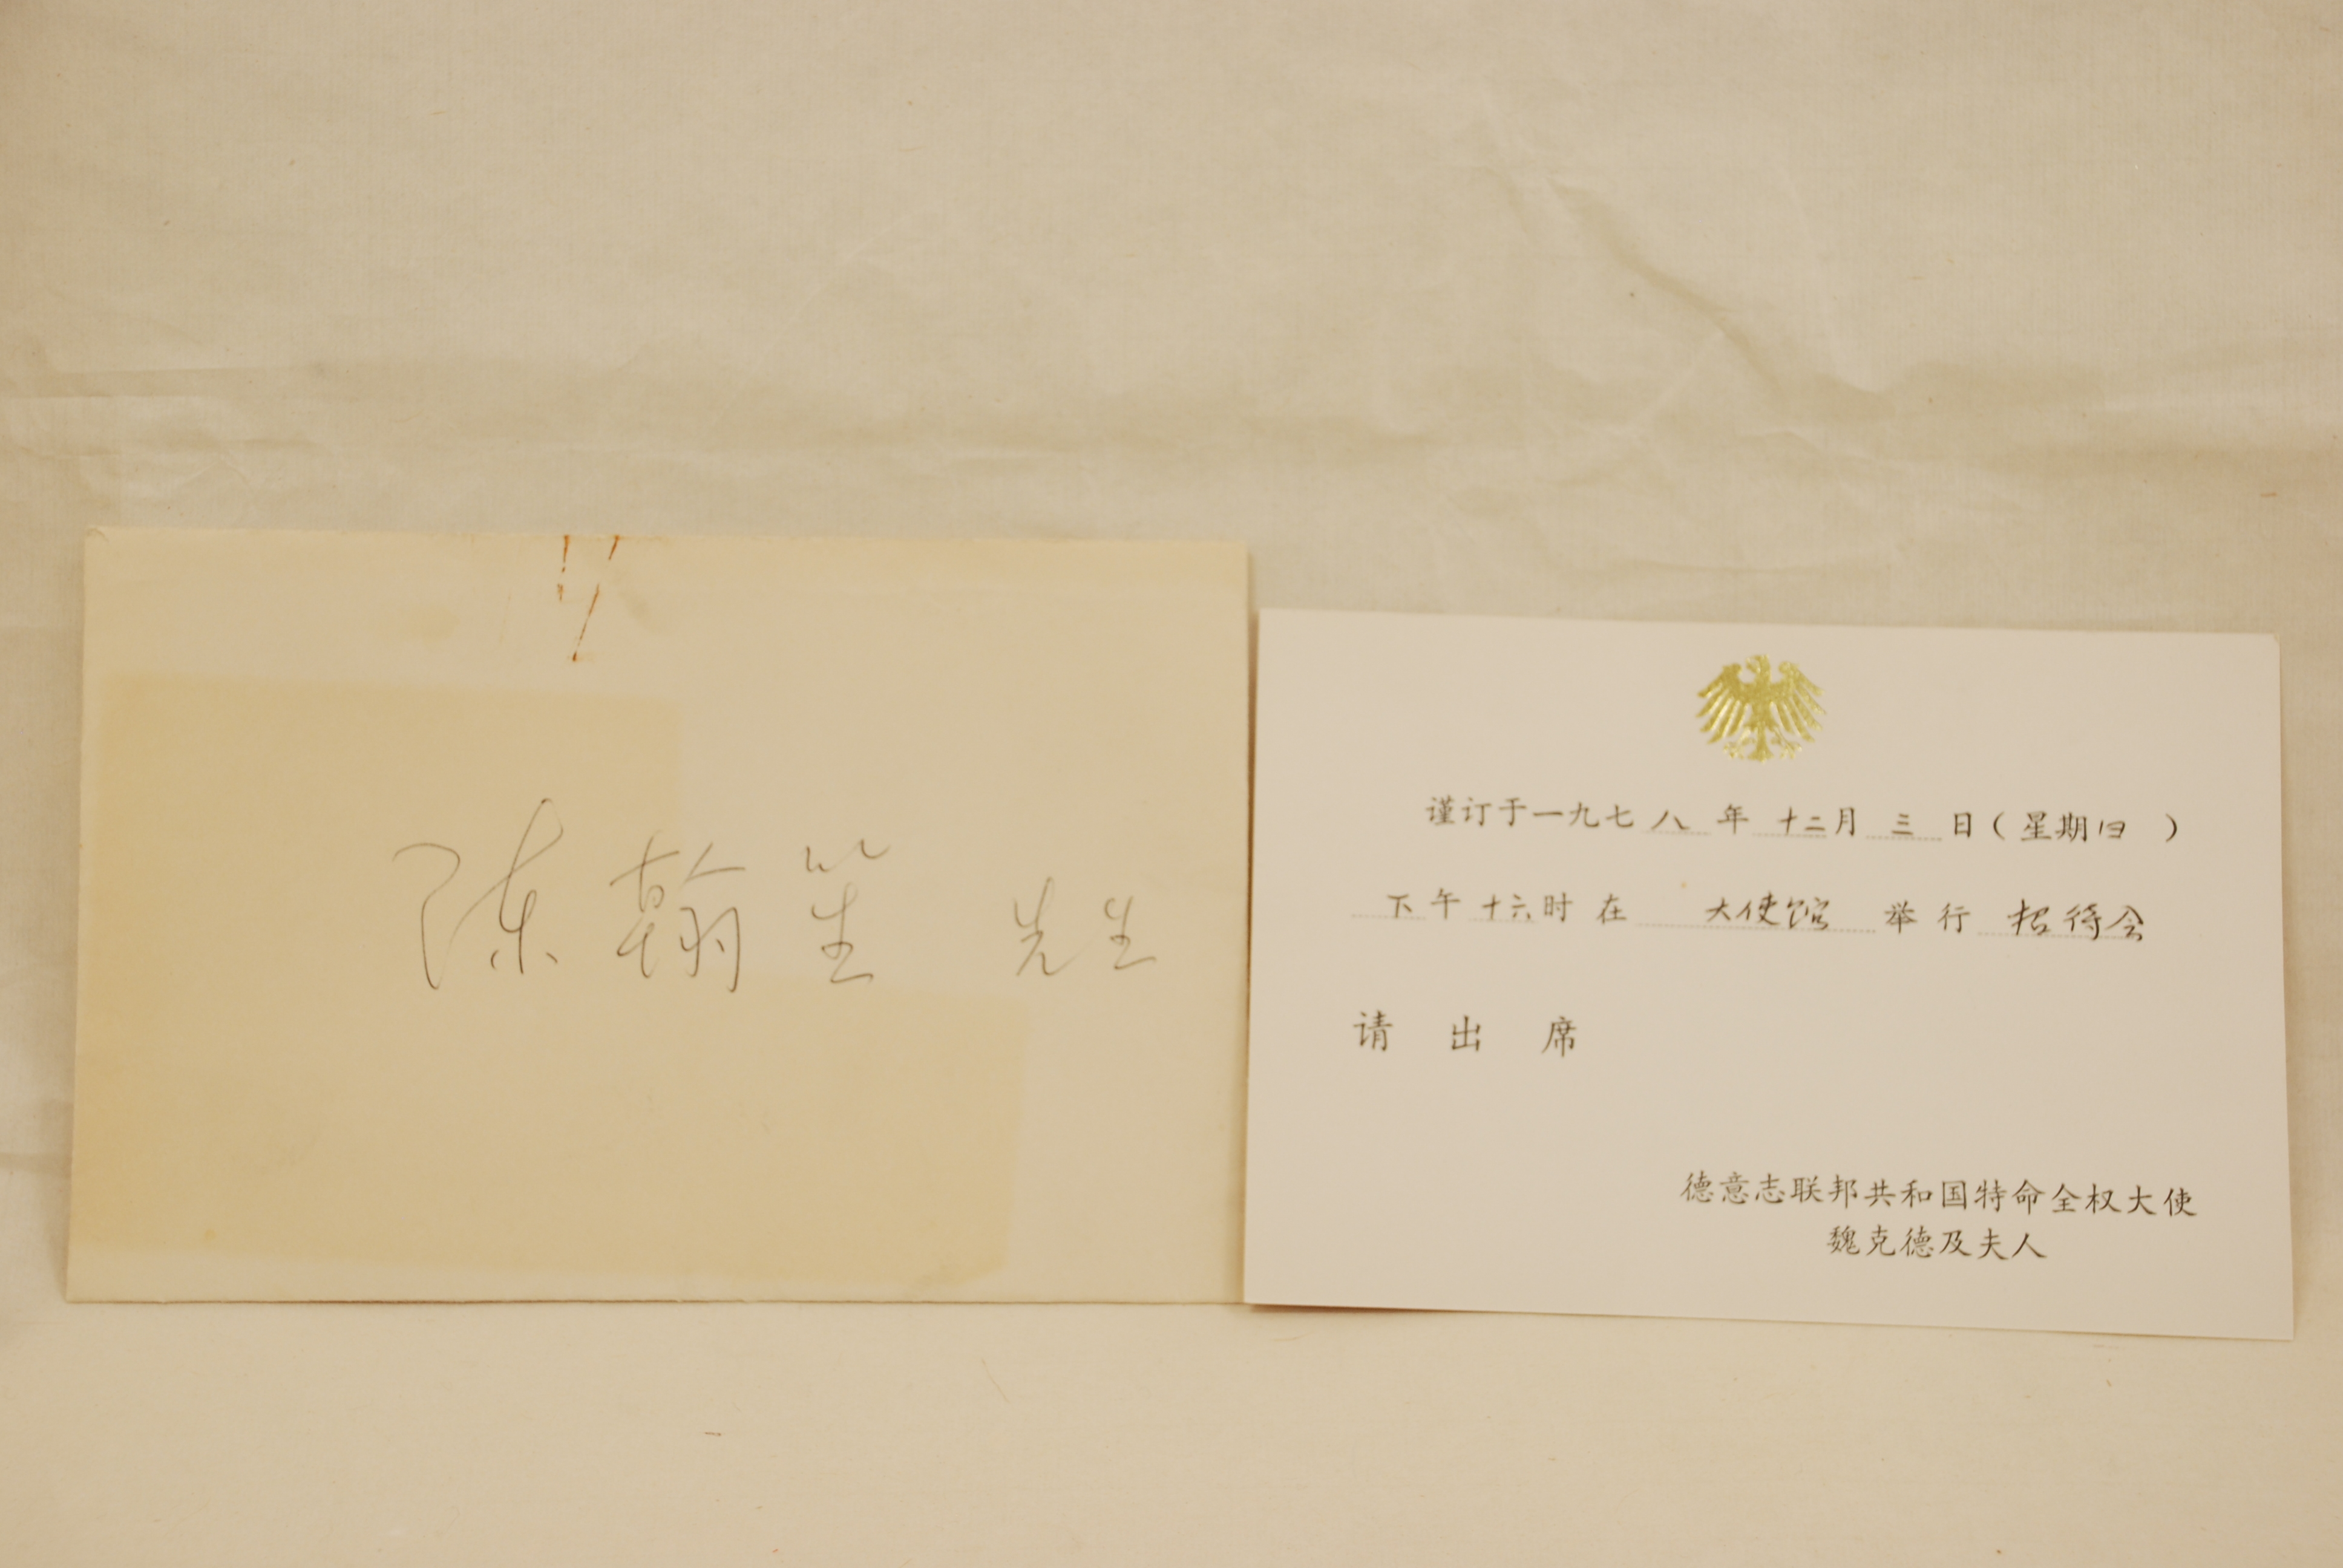 陈翰笙 先生
谨订于一九七八年十二月三日(星期日)
下午十六时在大使馆举行招待会
请出席
德意志联邦共和国特命全权大使
魏克德及夫人